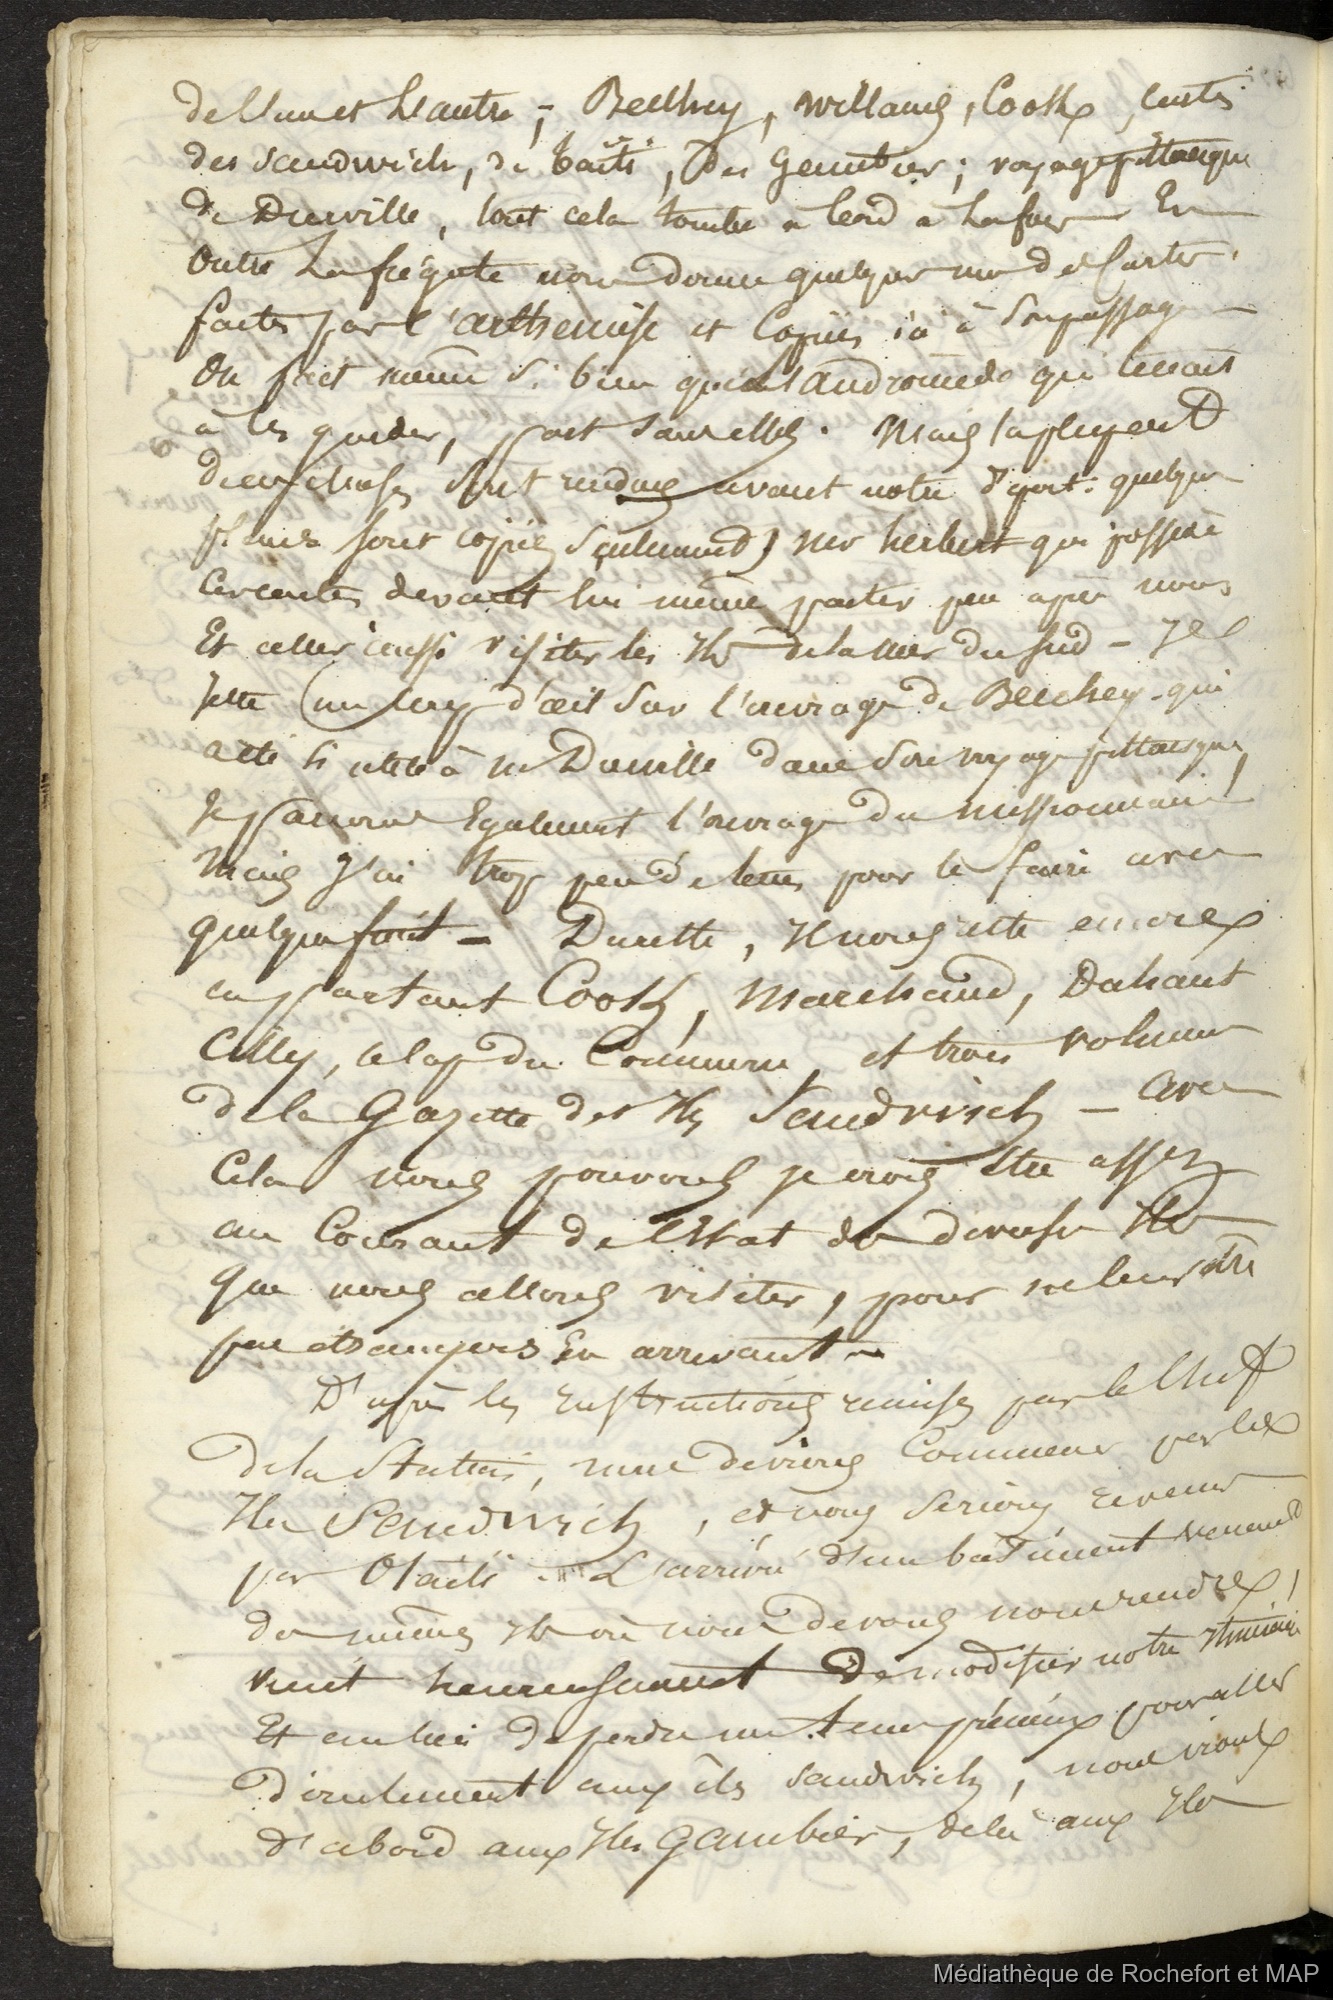 de l'un et l'autre; – Beechey, Willaug, Cook, cartes
des Sandwich, de Taïti, des Gambier; voyage pittoresque
de Durville, tout cela tombe à bord à la fois En
outre la frégate nous donne quelques unes des Cartes,
faites par l'arthemise et Copiés ici à son passage –
On fait même si bien que l'Andromède qui tenait
à les garder, part sans elles. Mais la plupart
des choses sont rendues avant notre départ: quelques
plans sont copiés seulement) Mr herbert qui possède
ces cartes devant lui même partir peu après nous
Et aller aussi visiter les Iles de la mer du Sud – Je
jette un coup d'œil sur l'ouvrage de Beechey qui
a été si utile à Mr Durville dans son voyage pittoresque,
Je parcours Egalement l'ouvrage du missionnaire
Mais J'ai trop peu de tems pour le faire avec
quelque fruit – Du reste, Il nous reste encore
en partant Cook, Marchand, Duhaut
Cilly, le cap du Commerce, et trois volumes
de la Gazette des Iles Sandwich – Avec
Cela nous pouvons je crois être assez
au Courant de l'Etat des diverses Iles
que nous allons visiter, pour ne leur être
pas étrangers En arrivant –
D'après les Instructions remises par le Chef
de la Station, nous devions Commencer par les
Iles Sandwich, et nous serions revenus
par Otaïti – L'arrivée d'un batiment venant
des mêmes Iles où nous devons nous rendre,
vient heureusement de modifier notre Itinéraire
Et au lieu de perdre un tems précieux pour aller
directement aux îles Sandwich, nous irons
d'abord aux Iles Gambier, de là aux Iles
Médiathèque de Rochefort et MAP